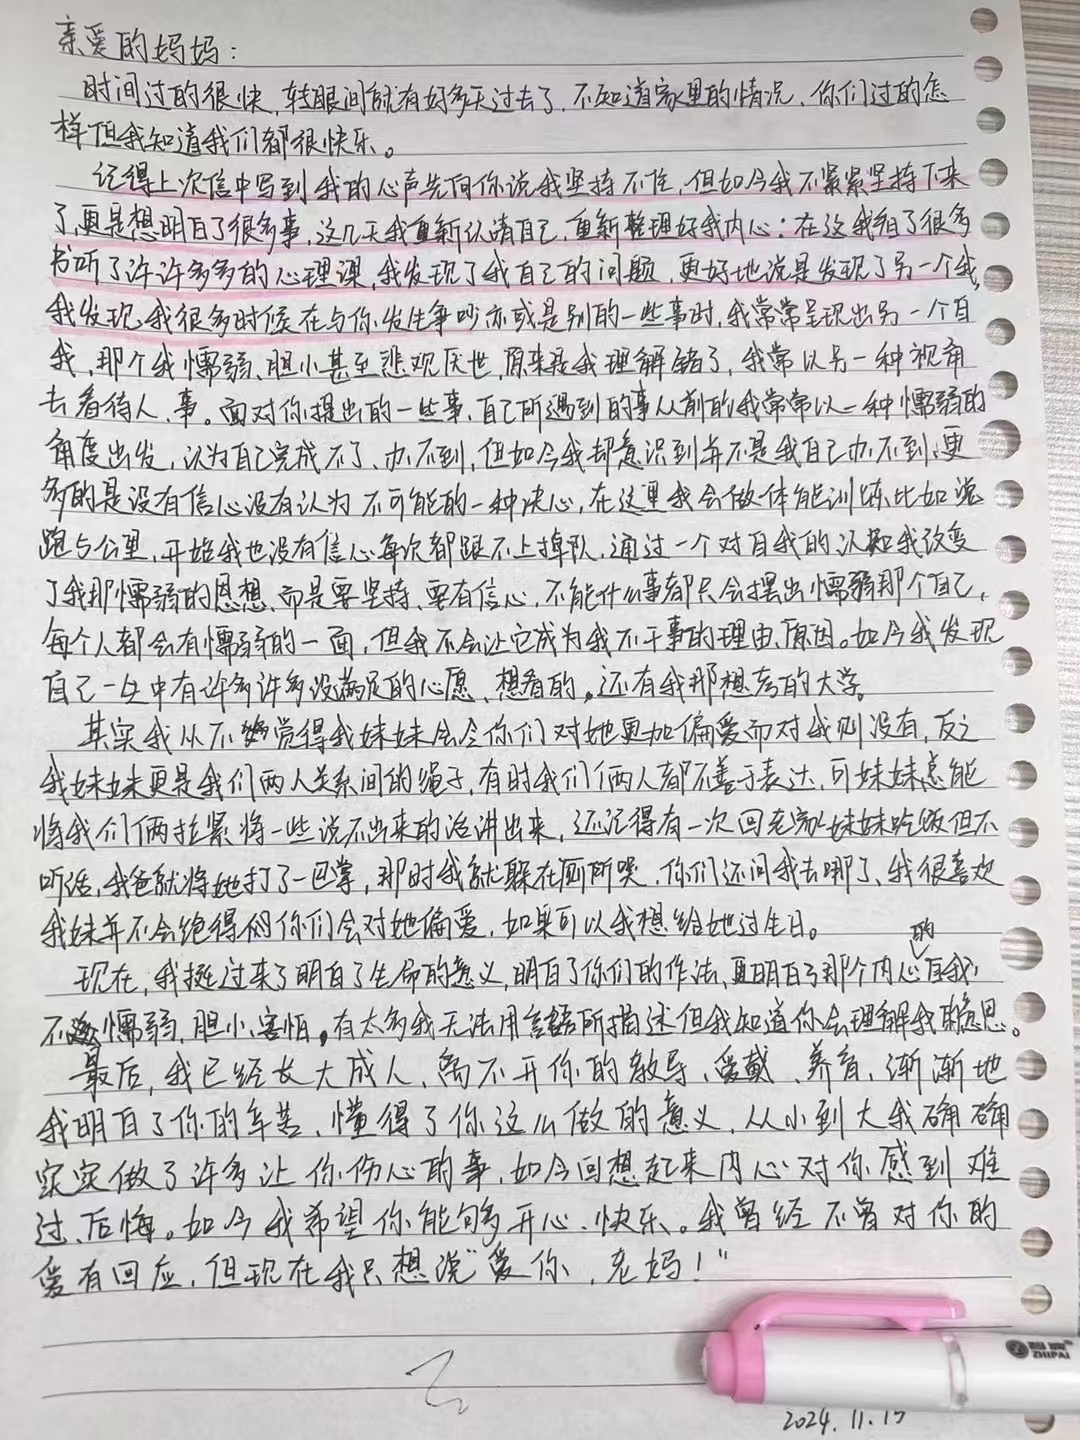 亲爱的妈妈：
时间过的很快，转眼间就有好多天过去了，不知道家里的情况、你们过的怎
样但我知道我们都很快乐。
记得上次信中写到我的心声先向你说我坚持不住，但如今我不紧紧坚持下来
了，更是想明白了很多事，这几天我重新认清自己，重新整理好我内心：在这我看了很多
书听了许许多多的心理课，我发现了我自己的问题，更好地说是发现了另一个我，
我发现我很多时候在与你发生争吵亦或是别的一些事时，我常常呈现出另一个自
我，那个我懦弱、胆小甚至悲观厌世，原来是我理解错了，我常以另一种视角
去看待人、事。面对你提出的一些事、自己所遇到的事从前的我常常以一种懦弱的
角度出发，认为自己完成不了、办不到，但如今我却意识到并不是我自己办不到，更
多的是没有信心没有认为不可能的一种决心，在这里我会做体能训练比如说
跑5公里，开始我也没有信心每次都跟不上掉队，通过一个对自我的认知我改变
了我那懦弱的思想，而是要坚持、要有信心，不能什么事都只会摆出懦弱那个自己，
每个人都会有懦弱的一面，但我不会让它成为我不干事的理由、原因。如今我发现
自己一生中有许多许多没满足的心愿、想看的，还有我那想考的大学。
其实我从不觉得我妹妹会令你们对她更加偏爱而对我则没有，反之
我妹妹更是我们两人关系间的绳子，有时我们俩人都不善于表达，可妹妹总能
将我们俩拉紧将一些说不出来的话讲出来，还记得有一次回老家妹妹吃饭但不
听话，我爸就将她打了一巴掌，那时我就躲在厕所哭，你们还问我去哪了、我很喜欢
我妹并不会觉得你们会对她偏爱，如果可以我想给她过生日。
现在，我挺过来了明白了生命的意义，明白了你们的作法，更明白了那个内心的自我：
不懦弱、胆小、害怕。有太多我无法用言语所描述但我知道你会理解我意思。
最后，我已经长大成人，离不开你的教导、爱戴、养育，渐渐地
我明白了你的辛苦，懂得了你这么做的意义，从小到大我确确
实实做了许多让你伤心的事，如今回想起来内心对你感到难
过、后悔。如今我希望你能够多开心、快乐。我曾经不曾对你的
爱有回应，但现在我只想说“爱你，老妈！”
智牌
ZHIPAI
2024.11.15